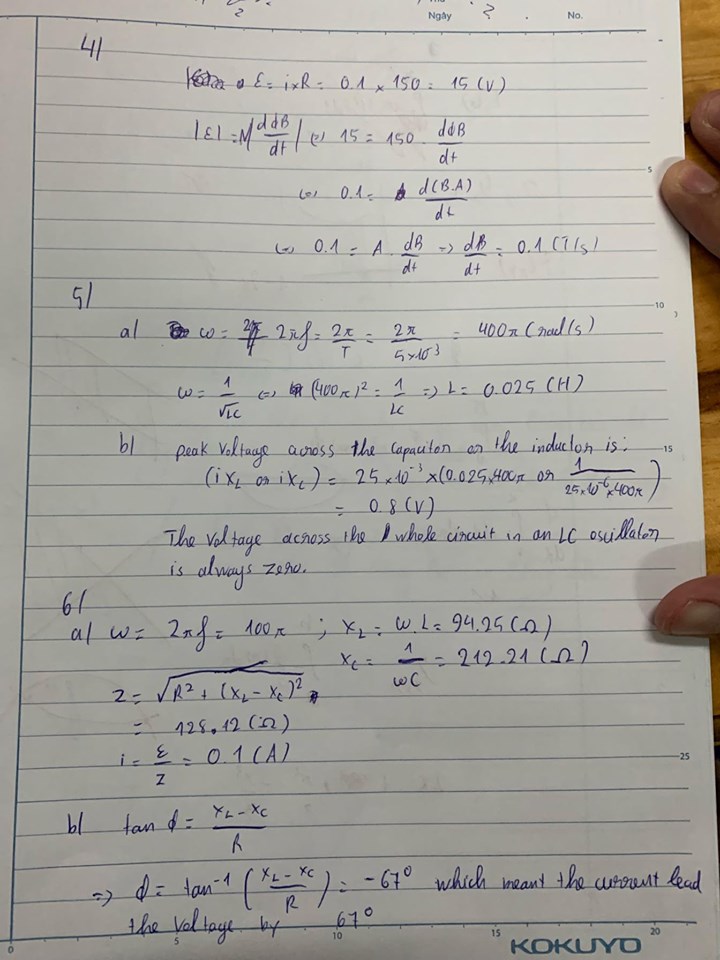 Ngày
No.
4/
ε = i×R = 0.1 × 150 = 15 (V)
|ε| = N|dϕB/dt| (=) 15 = 150 . dϕB/dt
(=) 0.1 = d(B.A)/dt
(=) 0.1 = A . dB/dt => dB/dt = 0.1 (T/s)
5
5/
10
a) ω = 2πf = 2π/T = 2π/5×10⁻³ = 400π (rad/s)
ω = 1/√LC (=) (400π)² = 1/LC => L = 0.025 (H)
b) peak voltage across the capacitor or the inductor is:
15
(iXL or iXC) = 25×10⁻³ × (0.025×400π or 1/25×10⁻⁶×400π)
= 0.8 (V)
The voltage across the whole circuit in an LC oscillator
is always zero.
6/
a) ω = 2πf = 100π ; XL = ω.L = 94.25 (Ω)
XC = 1/ωC = 212.21 (Ω)
Z = √R² + (XL - XC)²
= 128.12 (Ω)
i = ε/Z = 0.1 (A)
25
b) tan ϕ = XL - XC/R
=> ϕ = tan⁻¹ (XL - XC/R) = -67° which meant the current lead
the voltage by 67°
0 5 10 15 20
KOKUYO